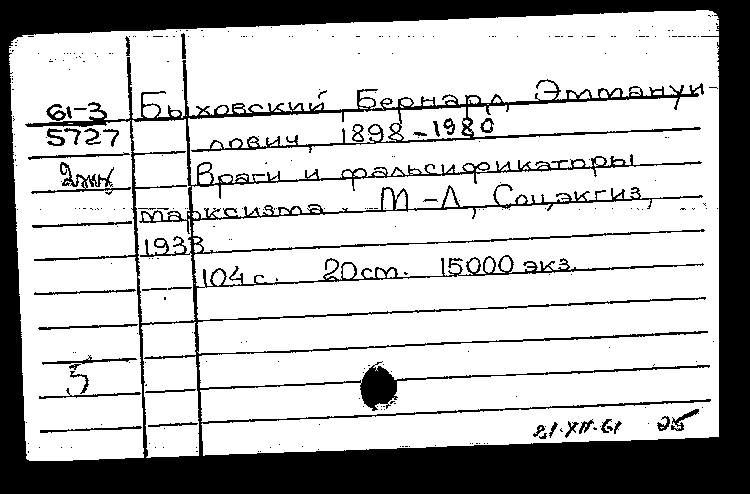 61-3 Быховский, Бернард Эммануи-
5727 лович, 1898-1980
2экз Враги и фальсификаторы
марксизма. М-Л, Соцэкгиз,
1933.
104с. 20см. 15000 экз.
5
21.XII.61